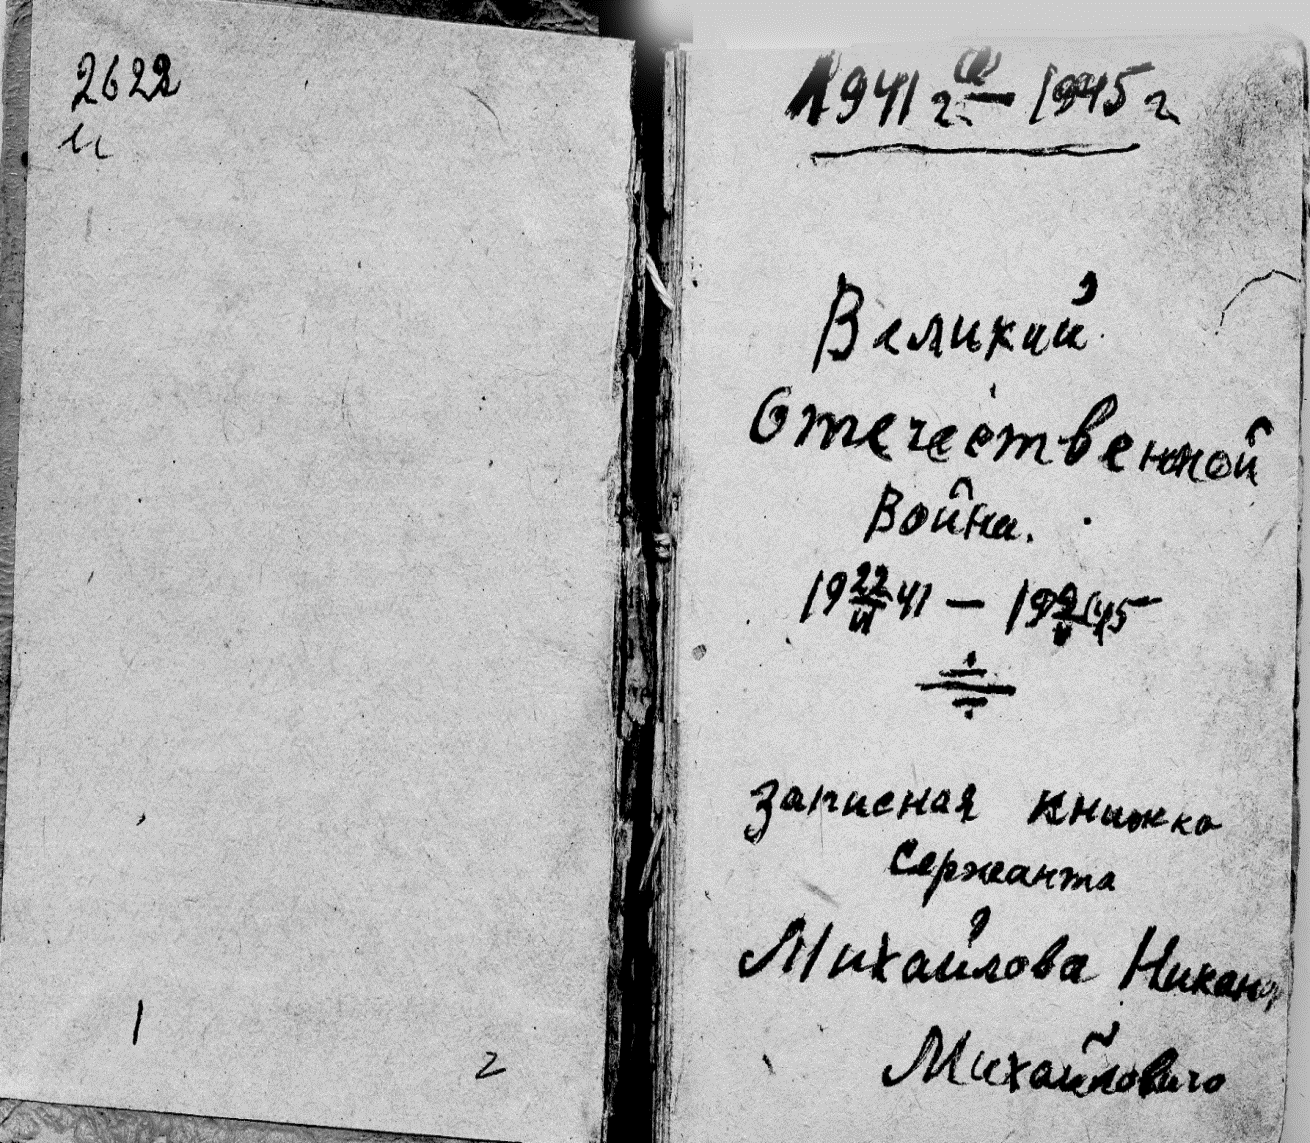 2622
и
1
2
1941 г. — 1945 г
Великий
Отечественной
Война.
19 22/VI 41 — 19 9/V 45
Записная книжка
Сержанта
Михайлова Никанор
Михайловича